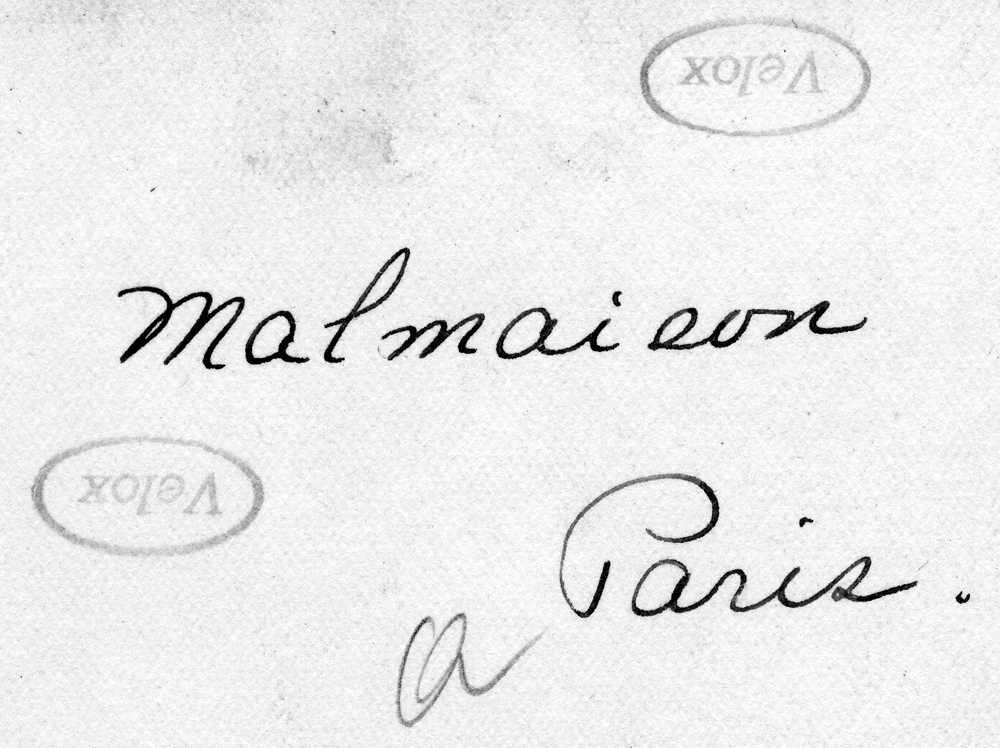 Velox
Malmaison
Velox
Paris.
a